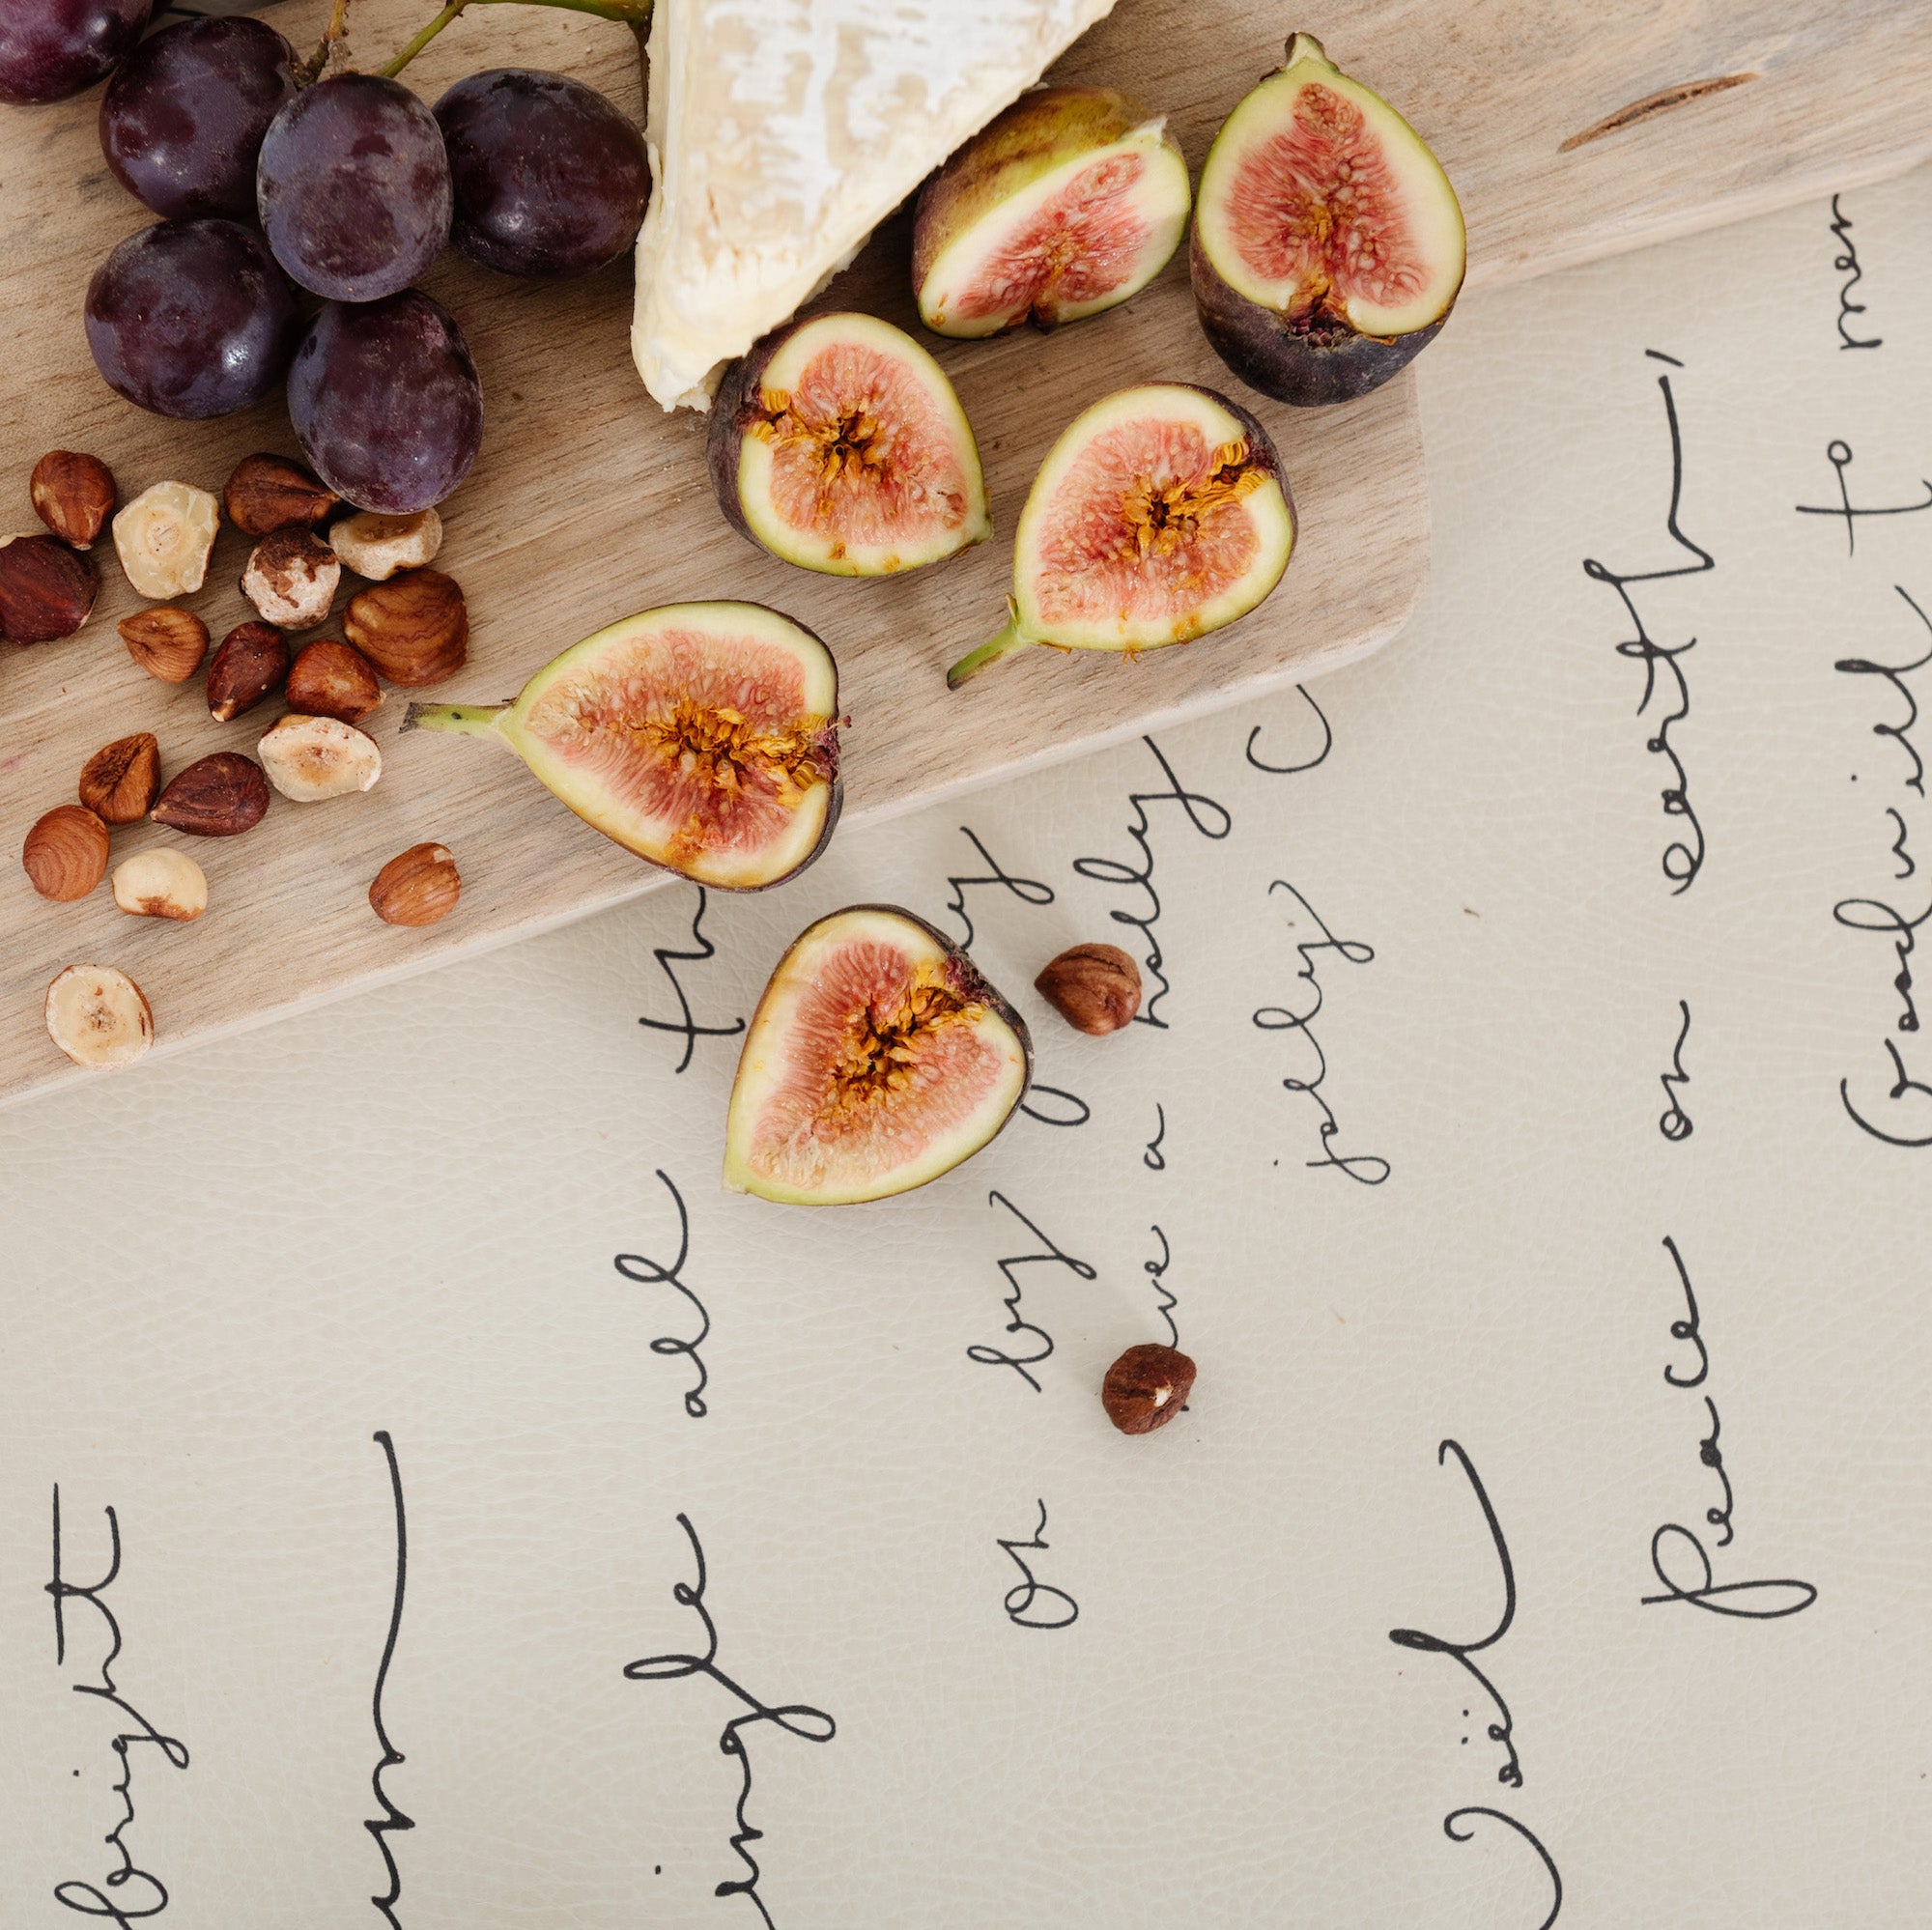 bright
ingle all th
Oh by
ve a holly
jolly C
Noël
Peace on earth,
Goodwill to men